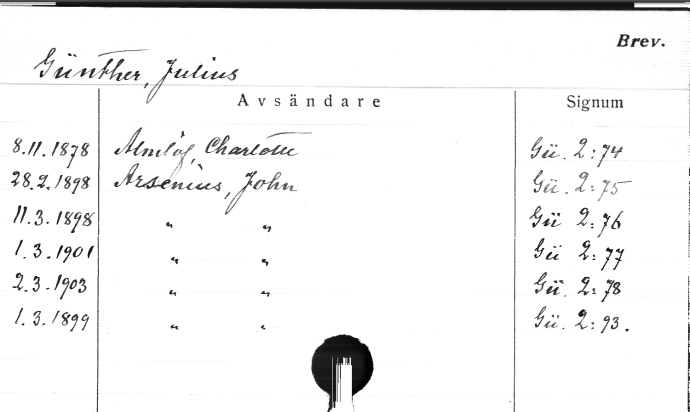 Brev.
Günther, Julius
Avsändare Signum
8.11.1878 Almlöf, Charlotte Gü. 2:74
28.2.1898 Arsenius, John Gü. 2:75
11.3.1898 " " Gü 2:76
1.3.1901 " " Gü 2:77
2.3.1903 " " Gü. 2:78
1.3.1899 " " Gü. 2:93.